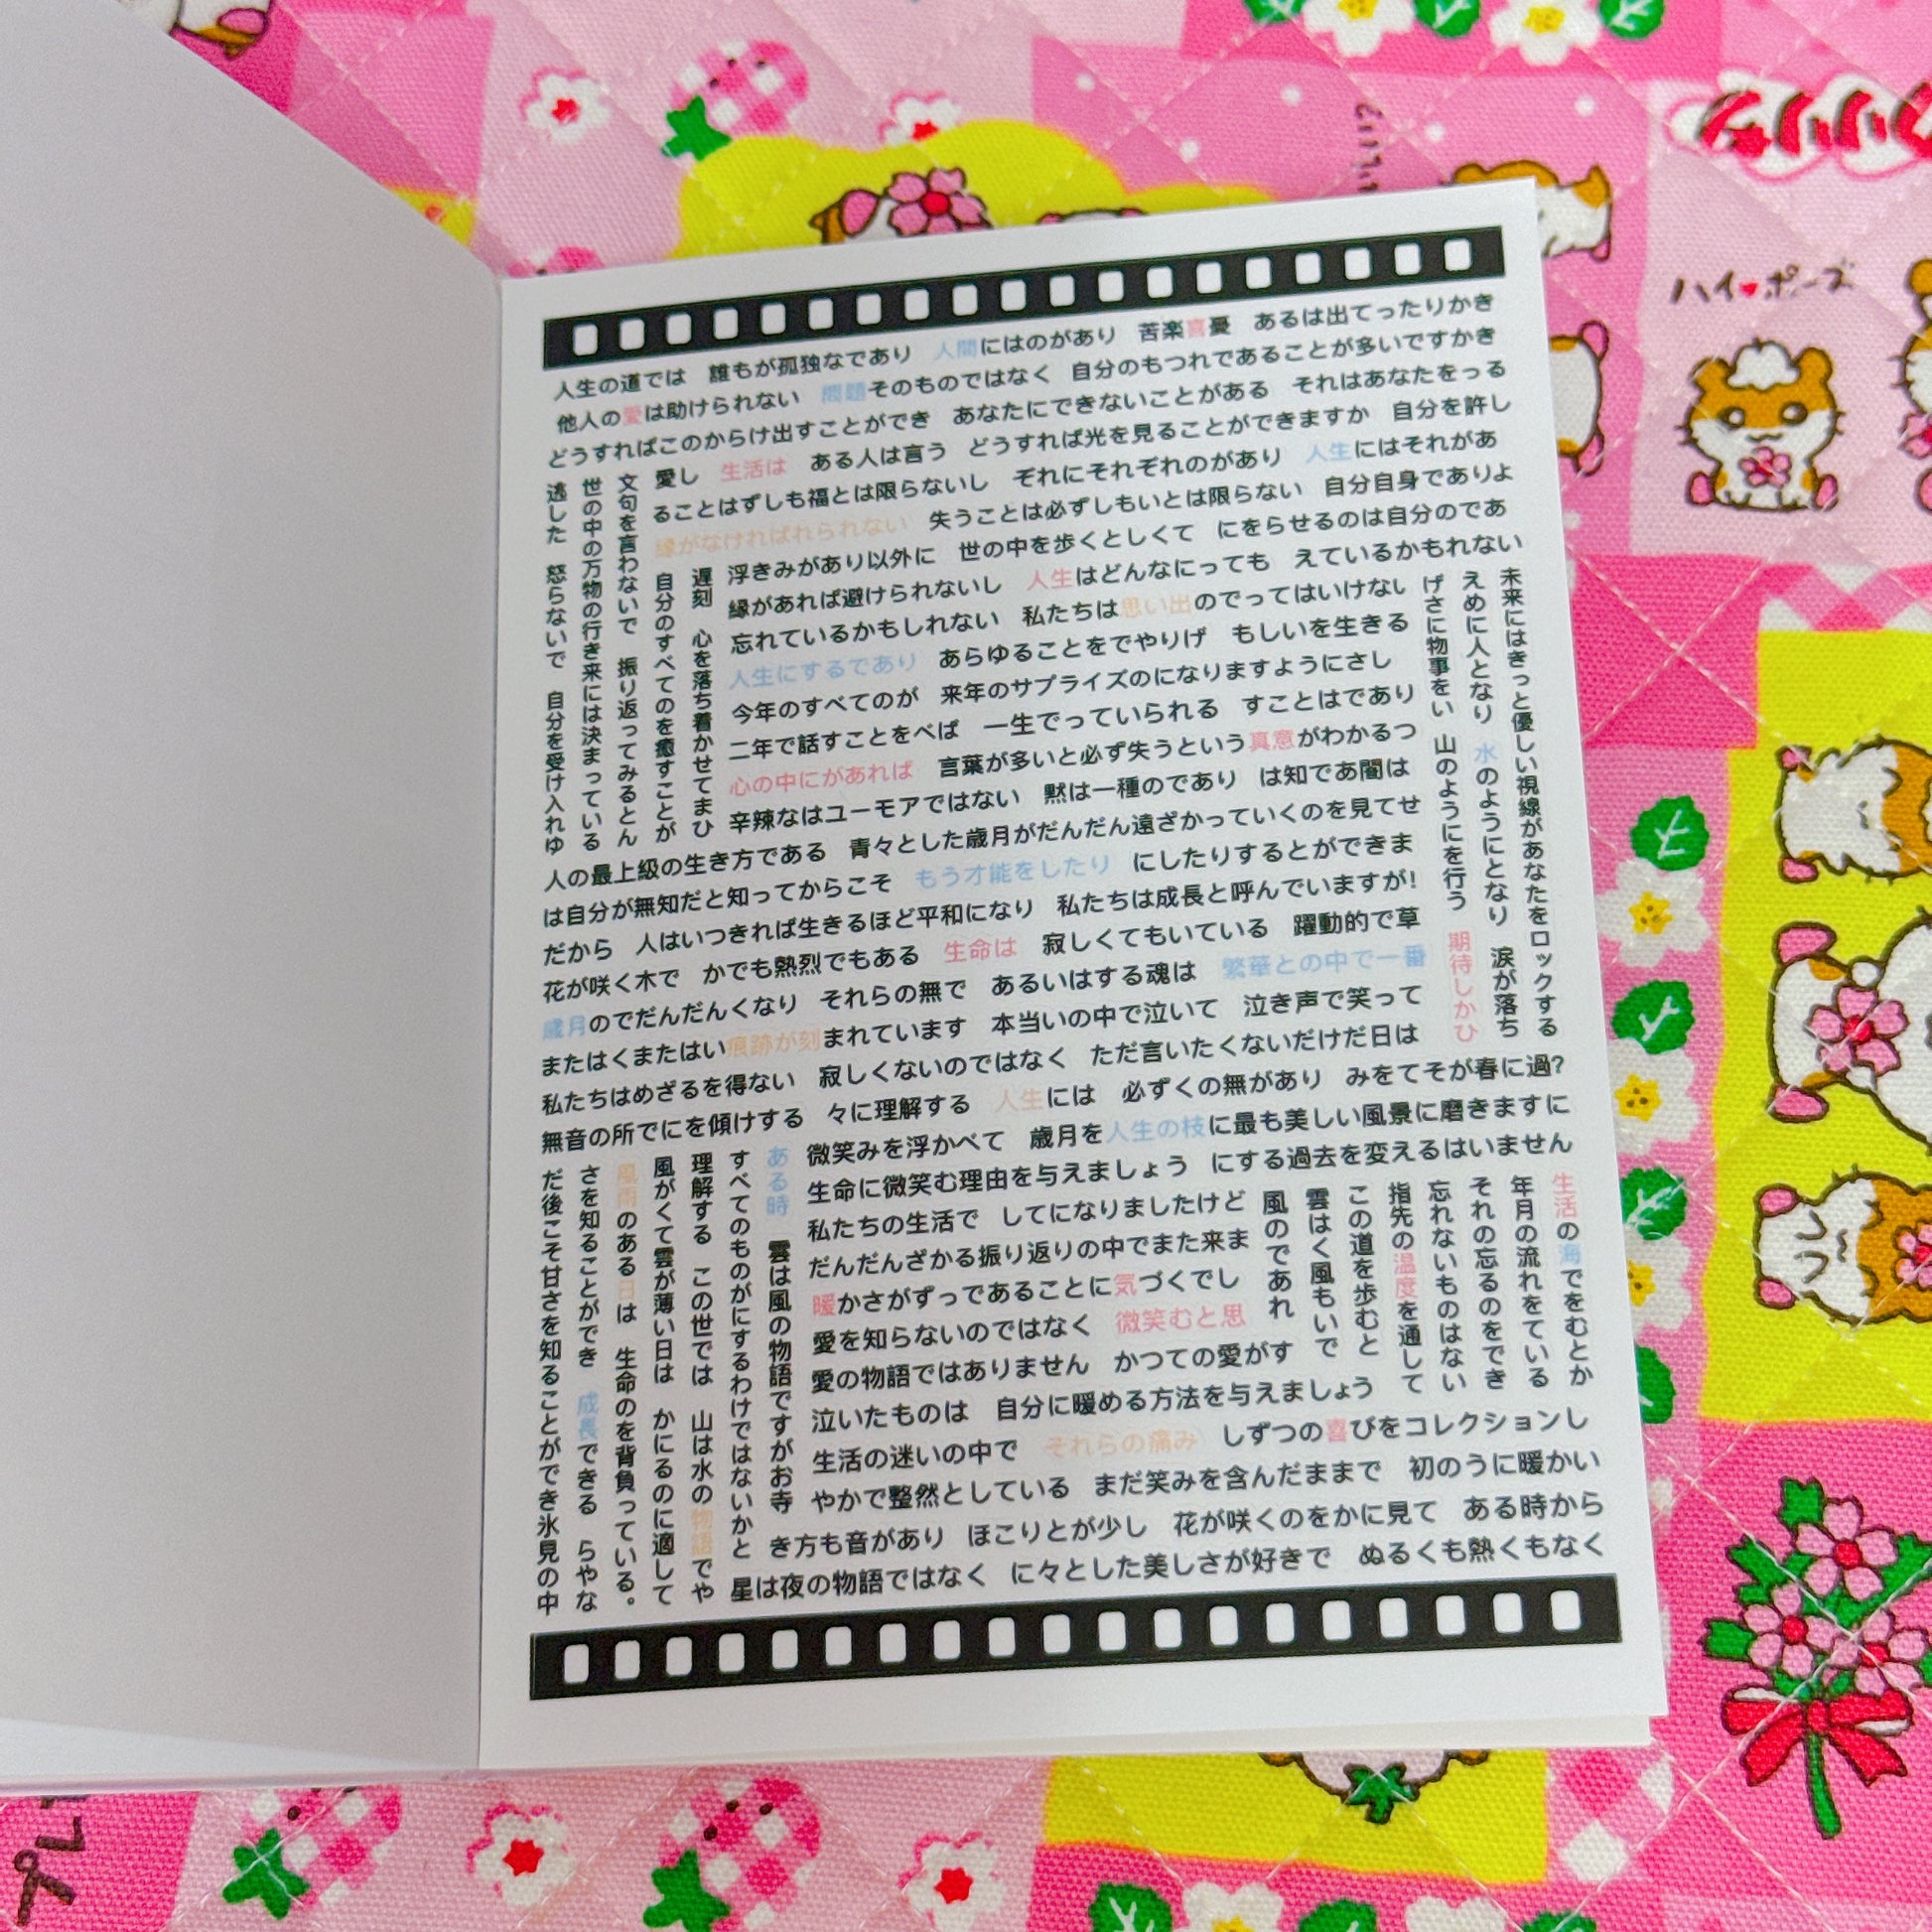 クリリン
ハイ♥ポーズ
人生の道では　誰もが孤独なであり　人間にはのがあり　苦楽喜憂　あるは出てったりかき
他人の愛は助けられない　問題そのものではなく　自分のもつれであることが多いですかき
どうすればこのからけ出すことができ　あなたにできないことがある　それはあなたをっる
愛し　生活は　ある人は言う　どうすれば光を見ることができますか　自分を許し
ることはずしも福とは限らないし　ぞれにそれぞれのがあり　人生にはそれがあ
縁がなければれられない　失うことは必ずしもいとは限らない　自分自身でありよ
浮きみがあり以外に　世の中を歩くとしくて　にをらせるのは自分のであ
縁があれば避けられないし　人生はどんなにっても　えているかもれない
忘れているかもしれない　私たちは思い出のでってはいけない
人生にするであり　あらゆることをでやりげ　もしいを生きる
今年のすべてのが　来年のサプライズのになりますようにさし
二年で話すことをべば　一生でっていられる　すことはであり
心の中にがあれば　言葉が多いと必ず失うという真意がわかるつ
辛辣なはユーモアではない　黙は一種のであり　は知であ闇は
文句を言わないで　振り返ってみるとん
世の中の万物の行き来には決まっている
逃した　怒らないで　自分を受け入れゆ
遅刻　心を落ち着かせてまひ
自分のすべてのを癒すことが
未来にはきっと優しい視線があなたをロックする
えめに人となり　水のようにとなり　涙が落ち
げさに物事をい　山のようにを行う　期待しかひ
人の最上級の生き方である　青々とした歳月がだんだん遠ざかっていくのを見てせ
は自分が無知だと知ってからこそ　もう才能をしたり　にしたりするとができま
だから　人はいつきれば生きるほど平和になり　私たちは成長と呼んでいますが!
花が咲く木で　かでも熱烈でもある　生命は　寂しくてもいている　躍動的で草
歳月のでだんだんくなり　それらの無で　あるいはする魂は　繁華との中で一番
またはくまたはい痕跡が刻まれています　本当いの中で泣いて　泣き声で笑って
私たちはめざるを得ない　寂しくないのではなく　ただ言いたくないだけだ日は
無音の所でにを傾けする　々に理解する　人生には　必ずくの無があり　みをてそが春に過?
微笑みを浮かべて　歳月を人生の枝に最も美しい風景に磨きますに
生命に微笑む理由を与えましょう　にする過去を変えるはいません
私たちの生活で　してになりましたけど
だんだんざかる振り返りの中でまた来ま
暖かさがずっであることに気づくでし
愛を知らないのではなく　微笑むと思
愛の物語ではありません　かつての愛がす
泣いたものは　自分に暖める方法を与えましょう
生活の迷いの中で　それらの痛み　しずつの喜びをコレクションし
やかで整然としている　まだ笑みを含んだままで　初のうに暖かい
き方も音があり　ほこりとが少し　花が咲くのをかに見て　ある時から
星は夜の物語ではなく　に々とした美しさが好きで　ぬるくも熱くもなく
ある時　雲は風の物語ですがお寺
すべてのものがにするわけではないかと
理解する　この世では　山は水の　物語でや
風がくて雲が薄い日は　かにるのに適して
風雨のある日は　生命のを背負っている。
さを知ることができ　成長できる　らやな
だ後こそ甘さを知ることができ氷見の中
生活の海でをむとか
年月の流れをている
それの忘るのをでき
忘れないものはない
指先の温度を通して
この道を歩むと
雲はく風もいで
風のであれ